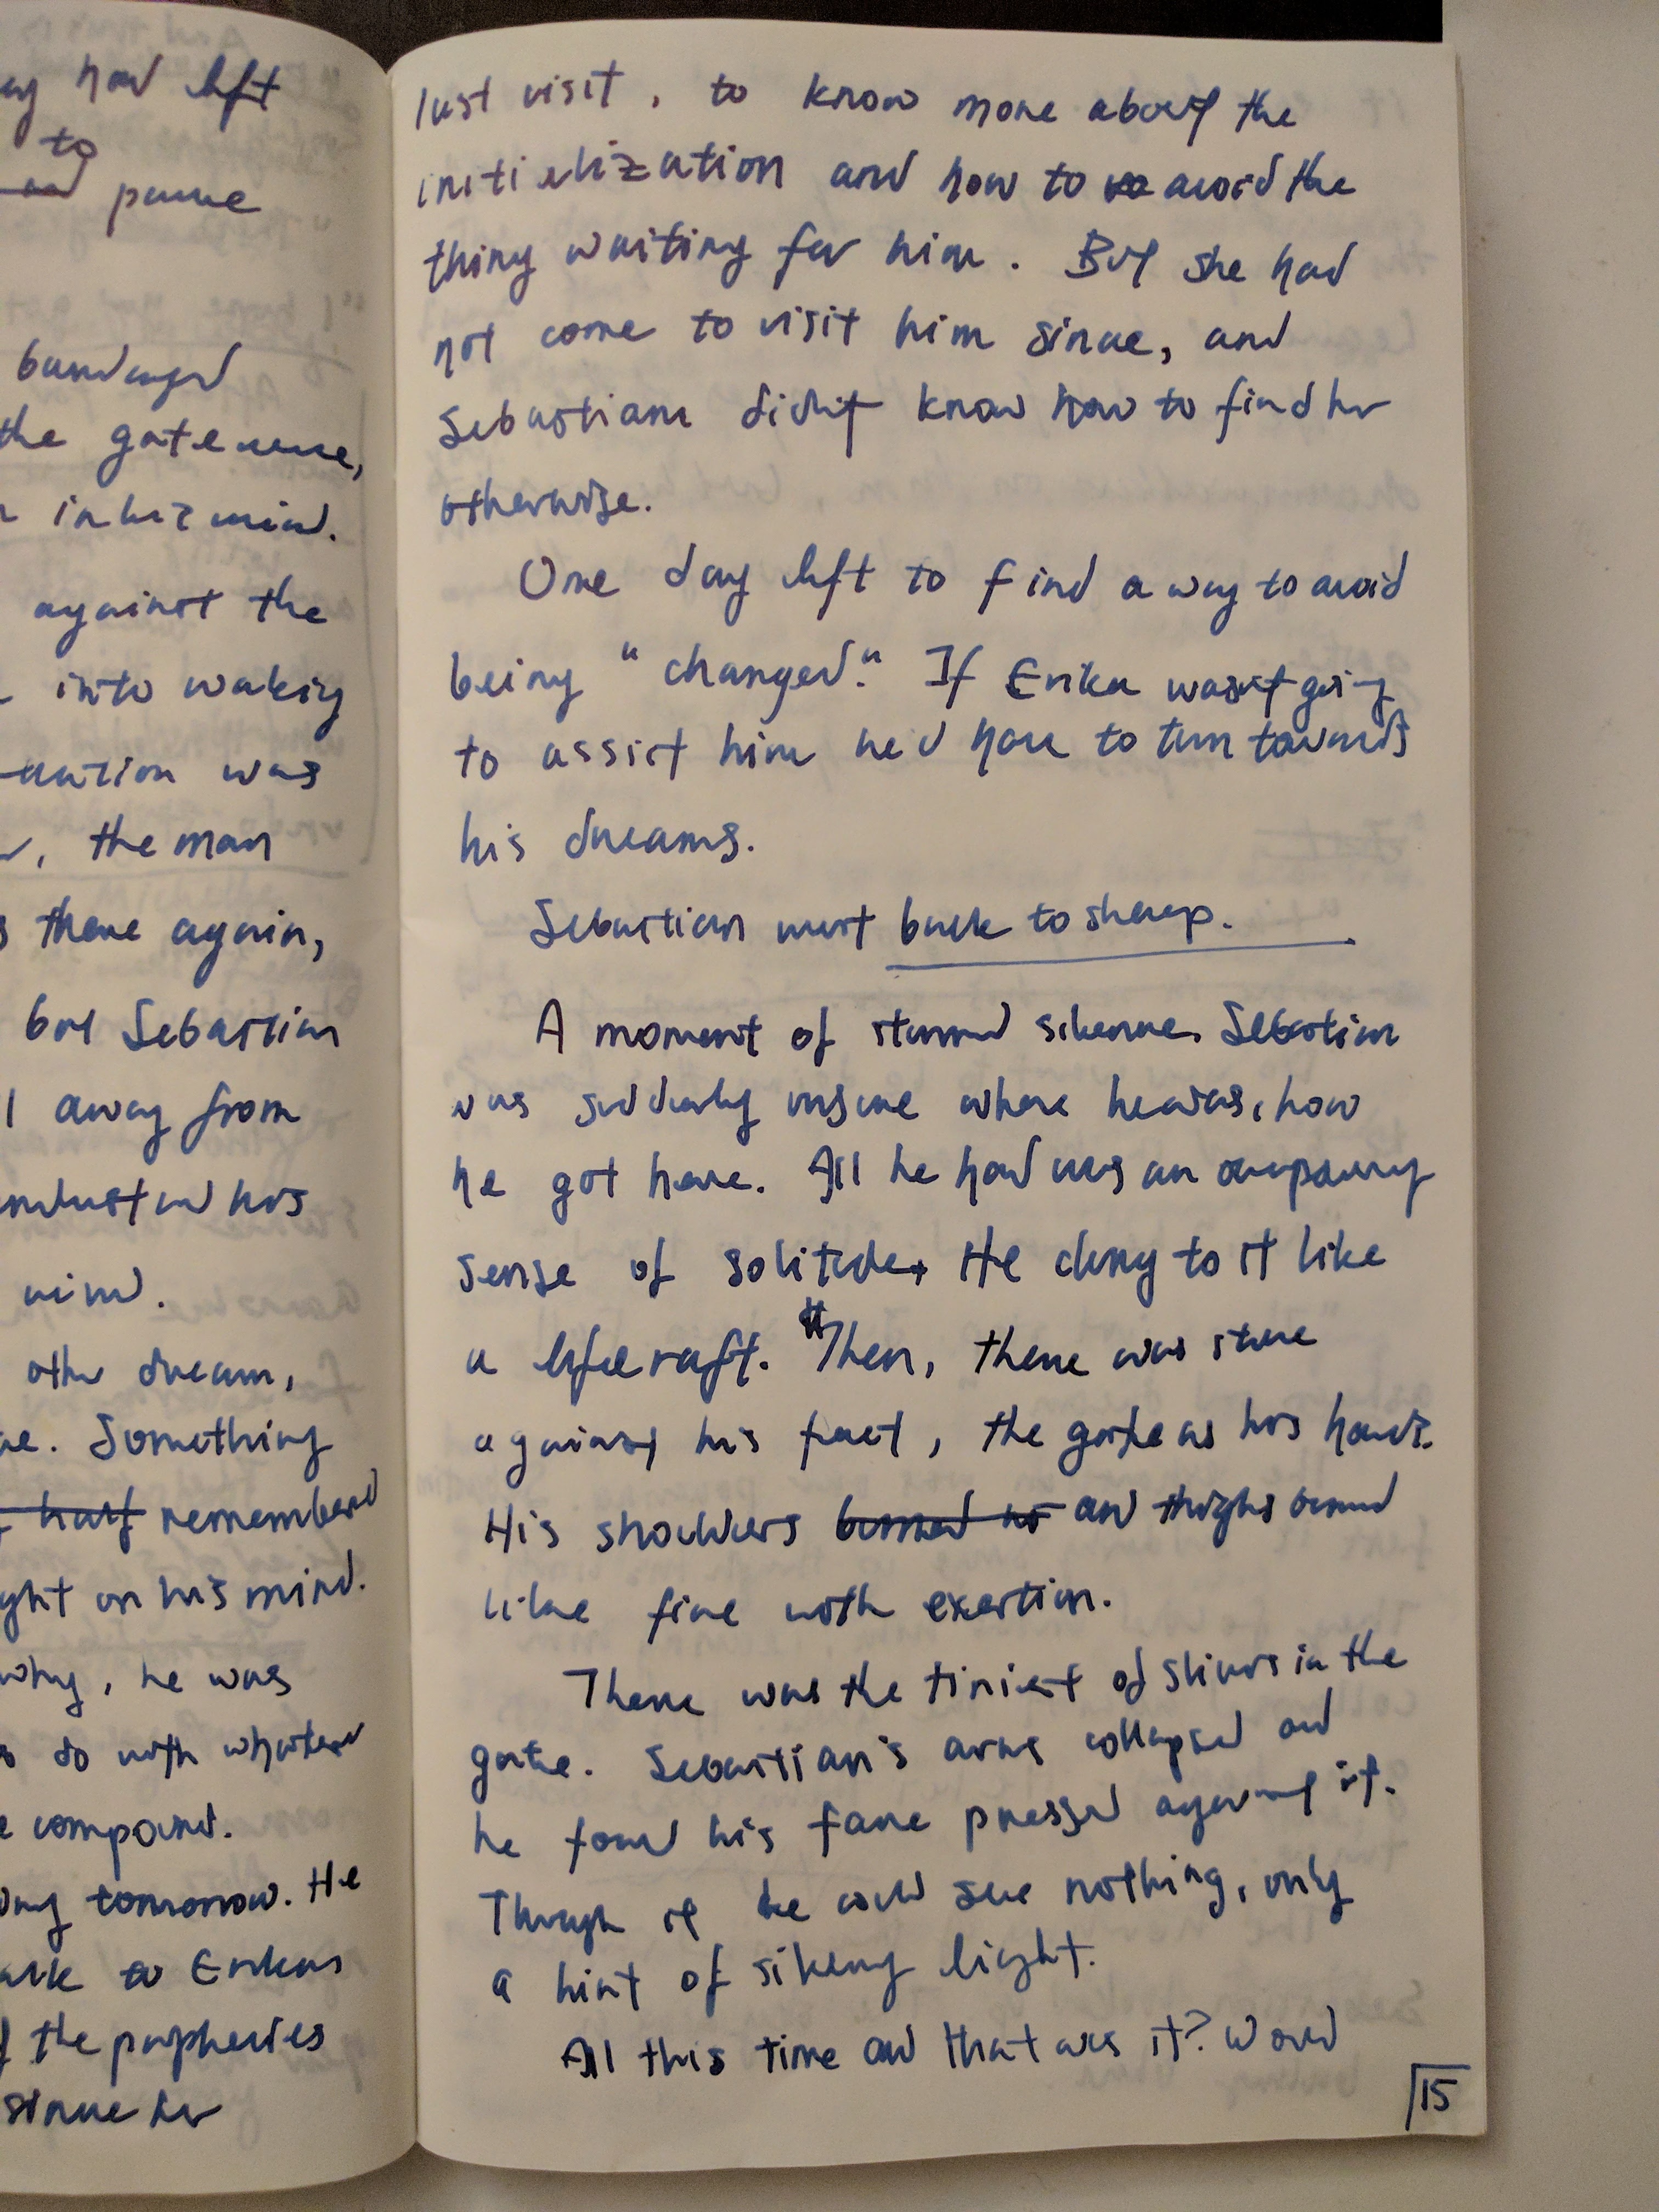 ay had left
to
and pause
bandaged
the gate
in his mind.
against the
into waking
was
, the man
there again,
but Sebastian
away from
his
mind.
other dream,
Something
half remembered
on his mind.
why, he was
do with whatever
compound.
tomorrow. He
to Erika
the prophecies
since her
last visit, to know more about the
initialization and how to avoid the
thing waiting for him. But she had
not come to visit him since, and
Sebastian didn't know how to find her
otherwise.
One day left to find a way to avoid
being "changed." If Erika wasn't going
to assist him he'd have to turn towards
his dreams.
Sebastian went back to sleep.
A moment of stunned silence. Sebastian
was suddenly unsure where he was, how
he got here. All he had was an
sense of solitude. He clung to it like
a liferaft. Then, there was stone
against his feet, the gate as his hands.
His shoulders burned as and thighs burned
like fire with exertion.
There was the tiniest of slivers in the
gate. Sebastian's arms collapsed and
he found his face pressed against it.
Through it he could see nothing, only
a hint of silvery light.
All this time and that was it? Would
15